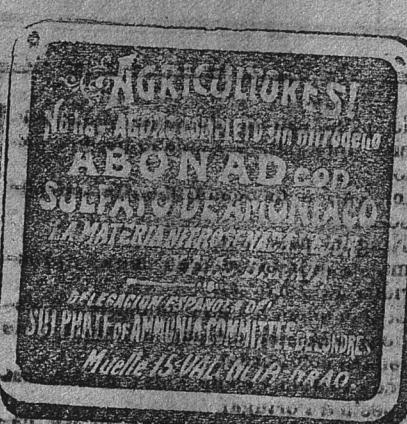 ¡AGRICULTORES!
No hay ABONO COMPLETO sin nitrógeno
ABONAD con
SULFATO DE AMONIACO
LA MATERIA NITROGENADA
DELEGACION ESPAÑOLA DEL
SULPHATE OF AMMONIA COMMITTEE DE LONDRES
Muelle 15-VALENCIA-GRAO.